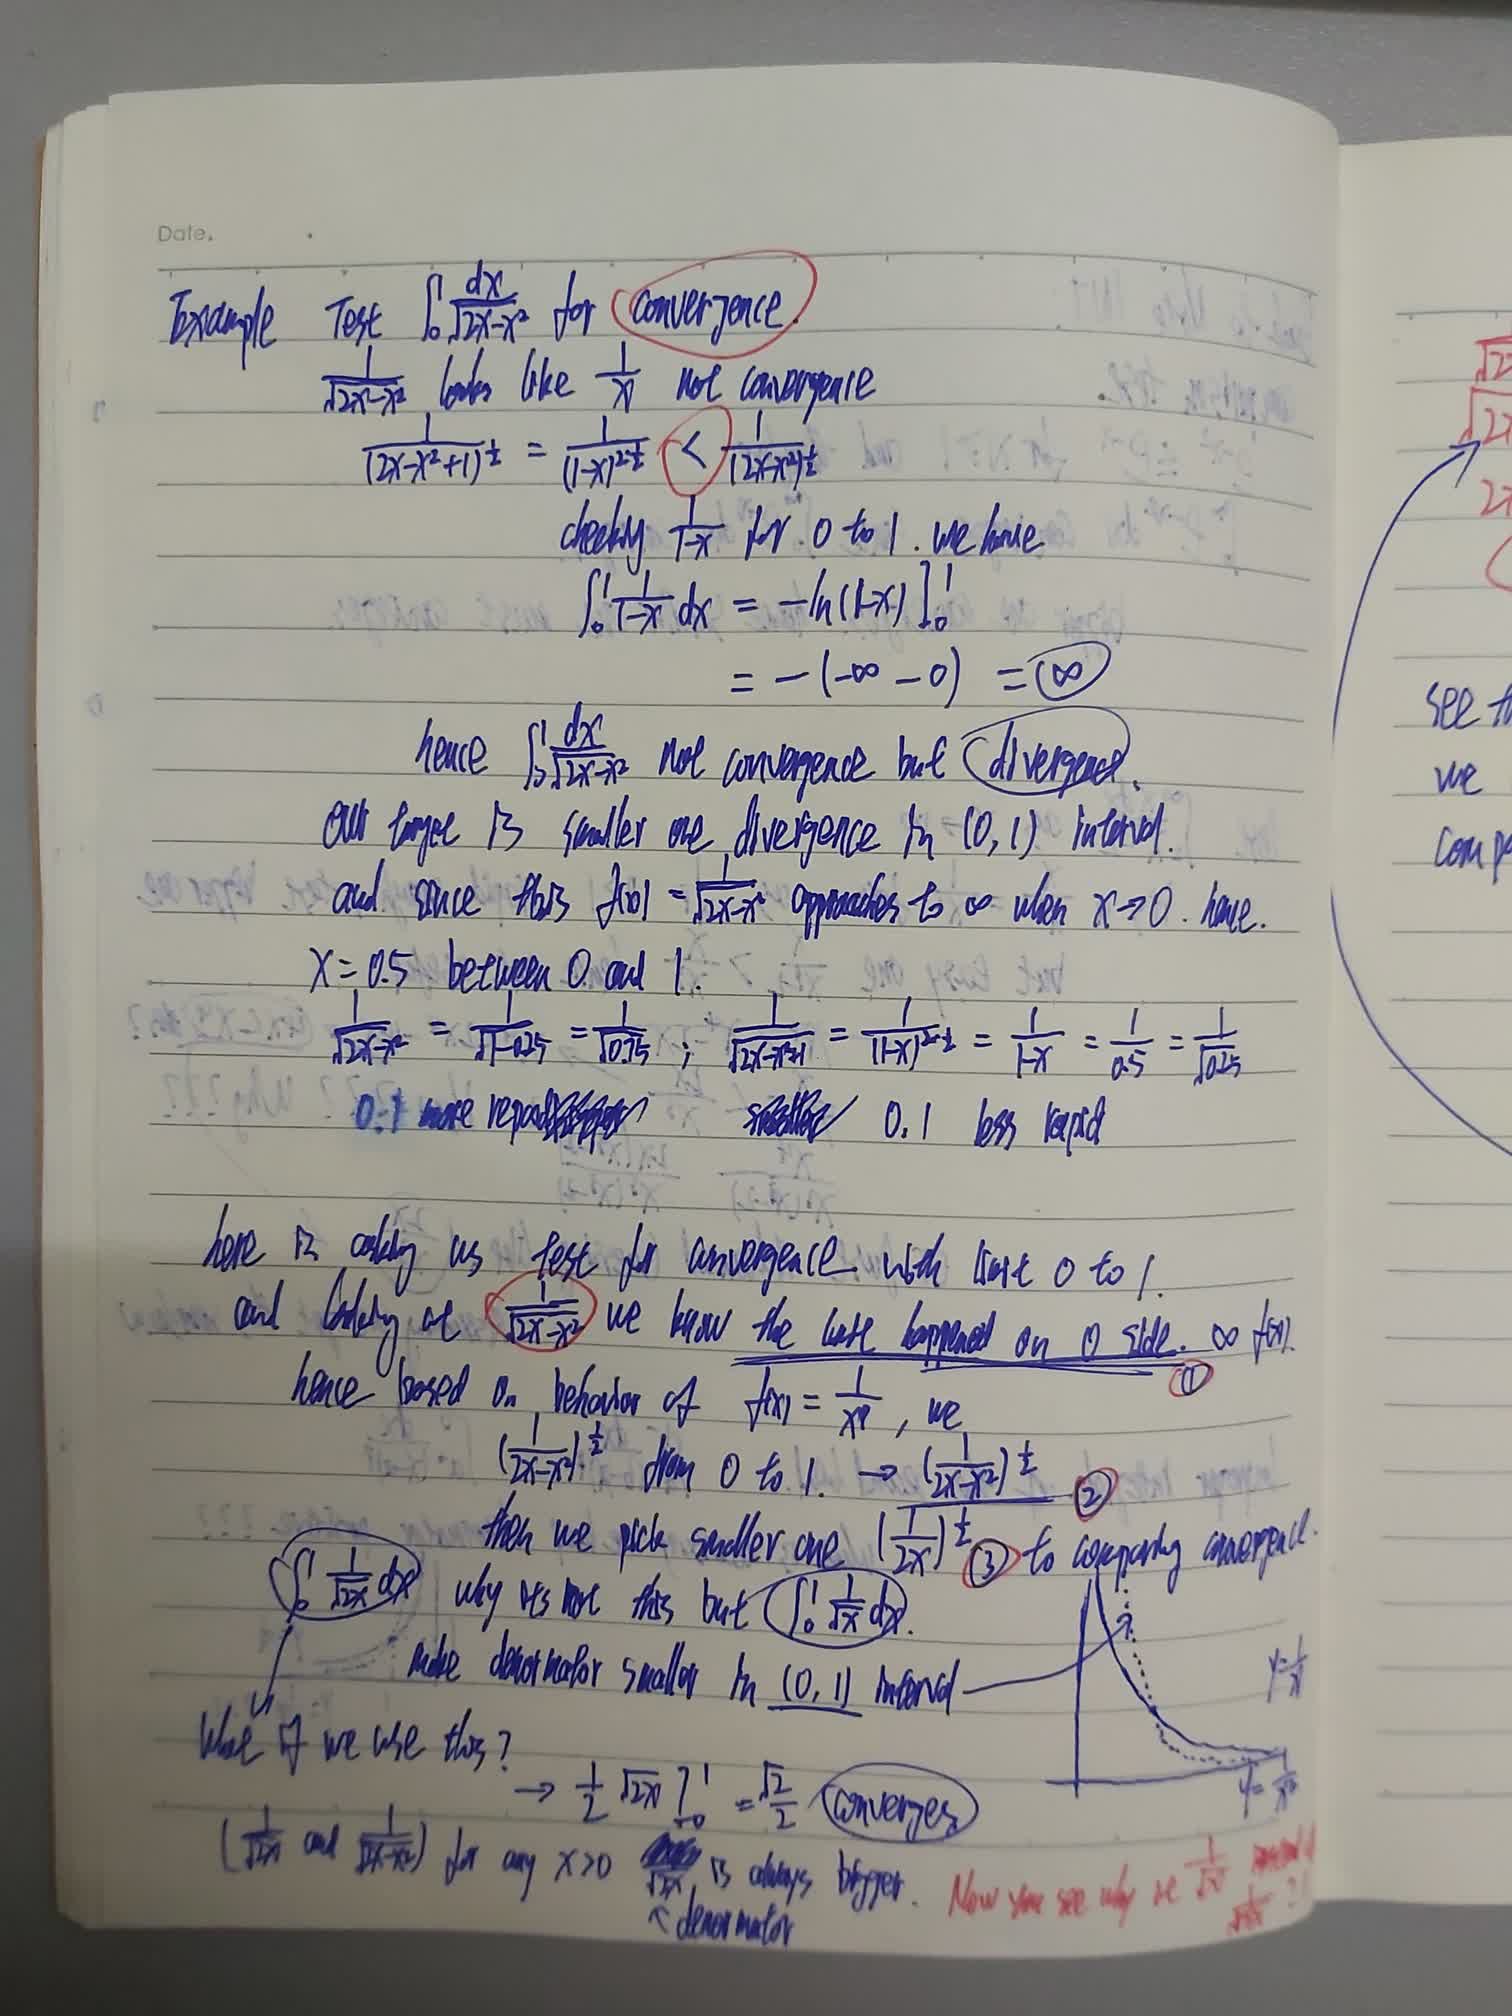 Date.
Example Test ∫₀¹ dx/√(2x-x²) for convergence.
1/√(2x-x²) looks like 1/x not convergence
1/(2x-x²+1)^½ = 1/(1-x)^(2·½) < 1/(2x-x²)^½
checking 1/(1-x) for 0 to 1. we have
∫₀¹ 1/(1-x) dx = -ln(1-x)]₀¹
= -(-∞ - 0) = ∞
hence ∫₀¹ dx/√(2x-x²) not convergence but divergence.
our target is smaller one divergence in (0, 1) interval.
and since this f(x) = 1/√(2x-x²) approaches to ∞ when x→0. have.
x = 0.5 between 0 and 1.
1/√(2x-x²) = 1/√(1-0.25) = 1/√0.75 ; 1/√(2x-x²+1) = 1/(1-x)^(2·½) = 1/(1-x) = 1/0.5 = 1/√0.25
0.1 more 0.1 less rapid
here is asking us test for convergence with limit 0 to 1.
and looking at 1/√(2x-x²) we know the happened on 0 side. ∞ f(x).
①
hence based on behavior of f(x) = 1/xᵖ, we
(1/(2x-x²))^½ from 0 to 1. → (1/(2x-x²))^½ ②
then we pick smaller one (1/2x)^½ ③ to comparing convergence.
∫₀¹ 1/√(2x) dx why its not this but ∫₀¹ 1/√x dx.
make denormator smaller in (0, 1) interval
y = 1/x
What if we use this?
y = 1/x²
→ ½ √2x ]₀¹ = √2/2 converges
(1/√2x and 1/√(2x-x²)) for any x>0 √2x is always bigger.
↖ denormator
Now you see why we 1/√x 1/√2x ?!
√2
see th
we
comp